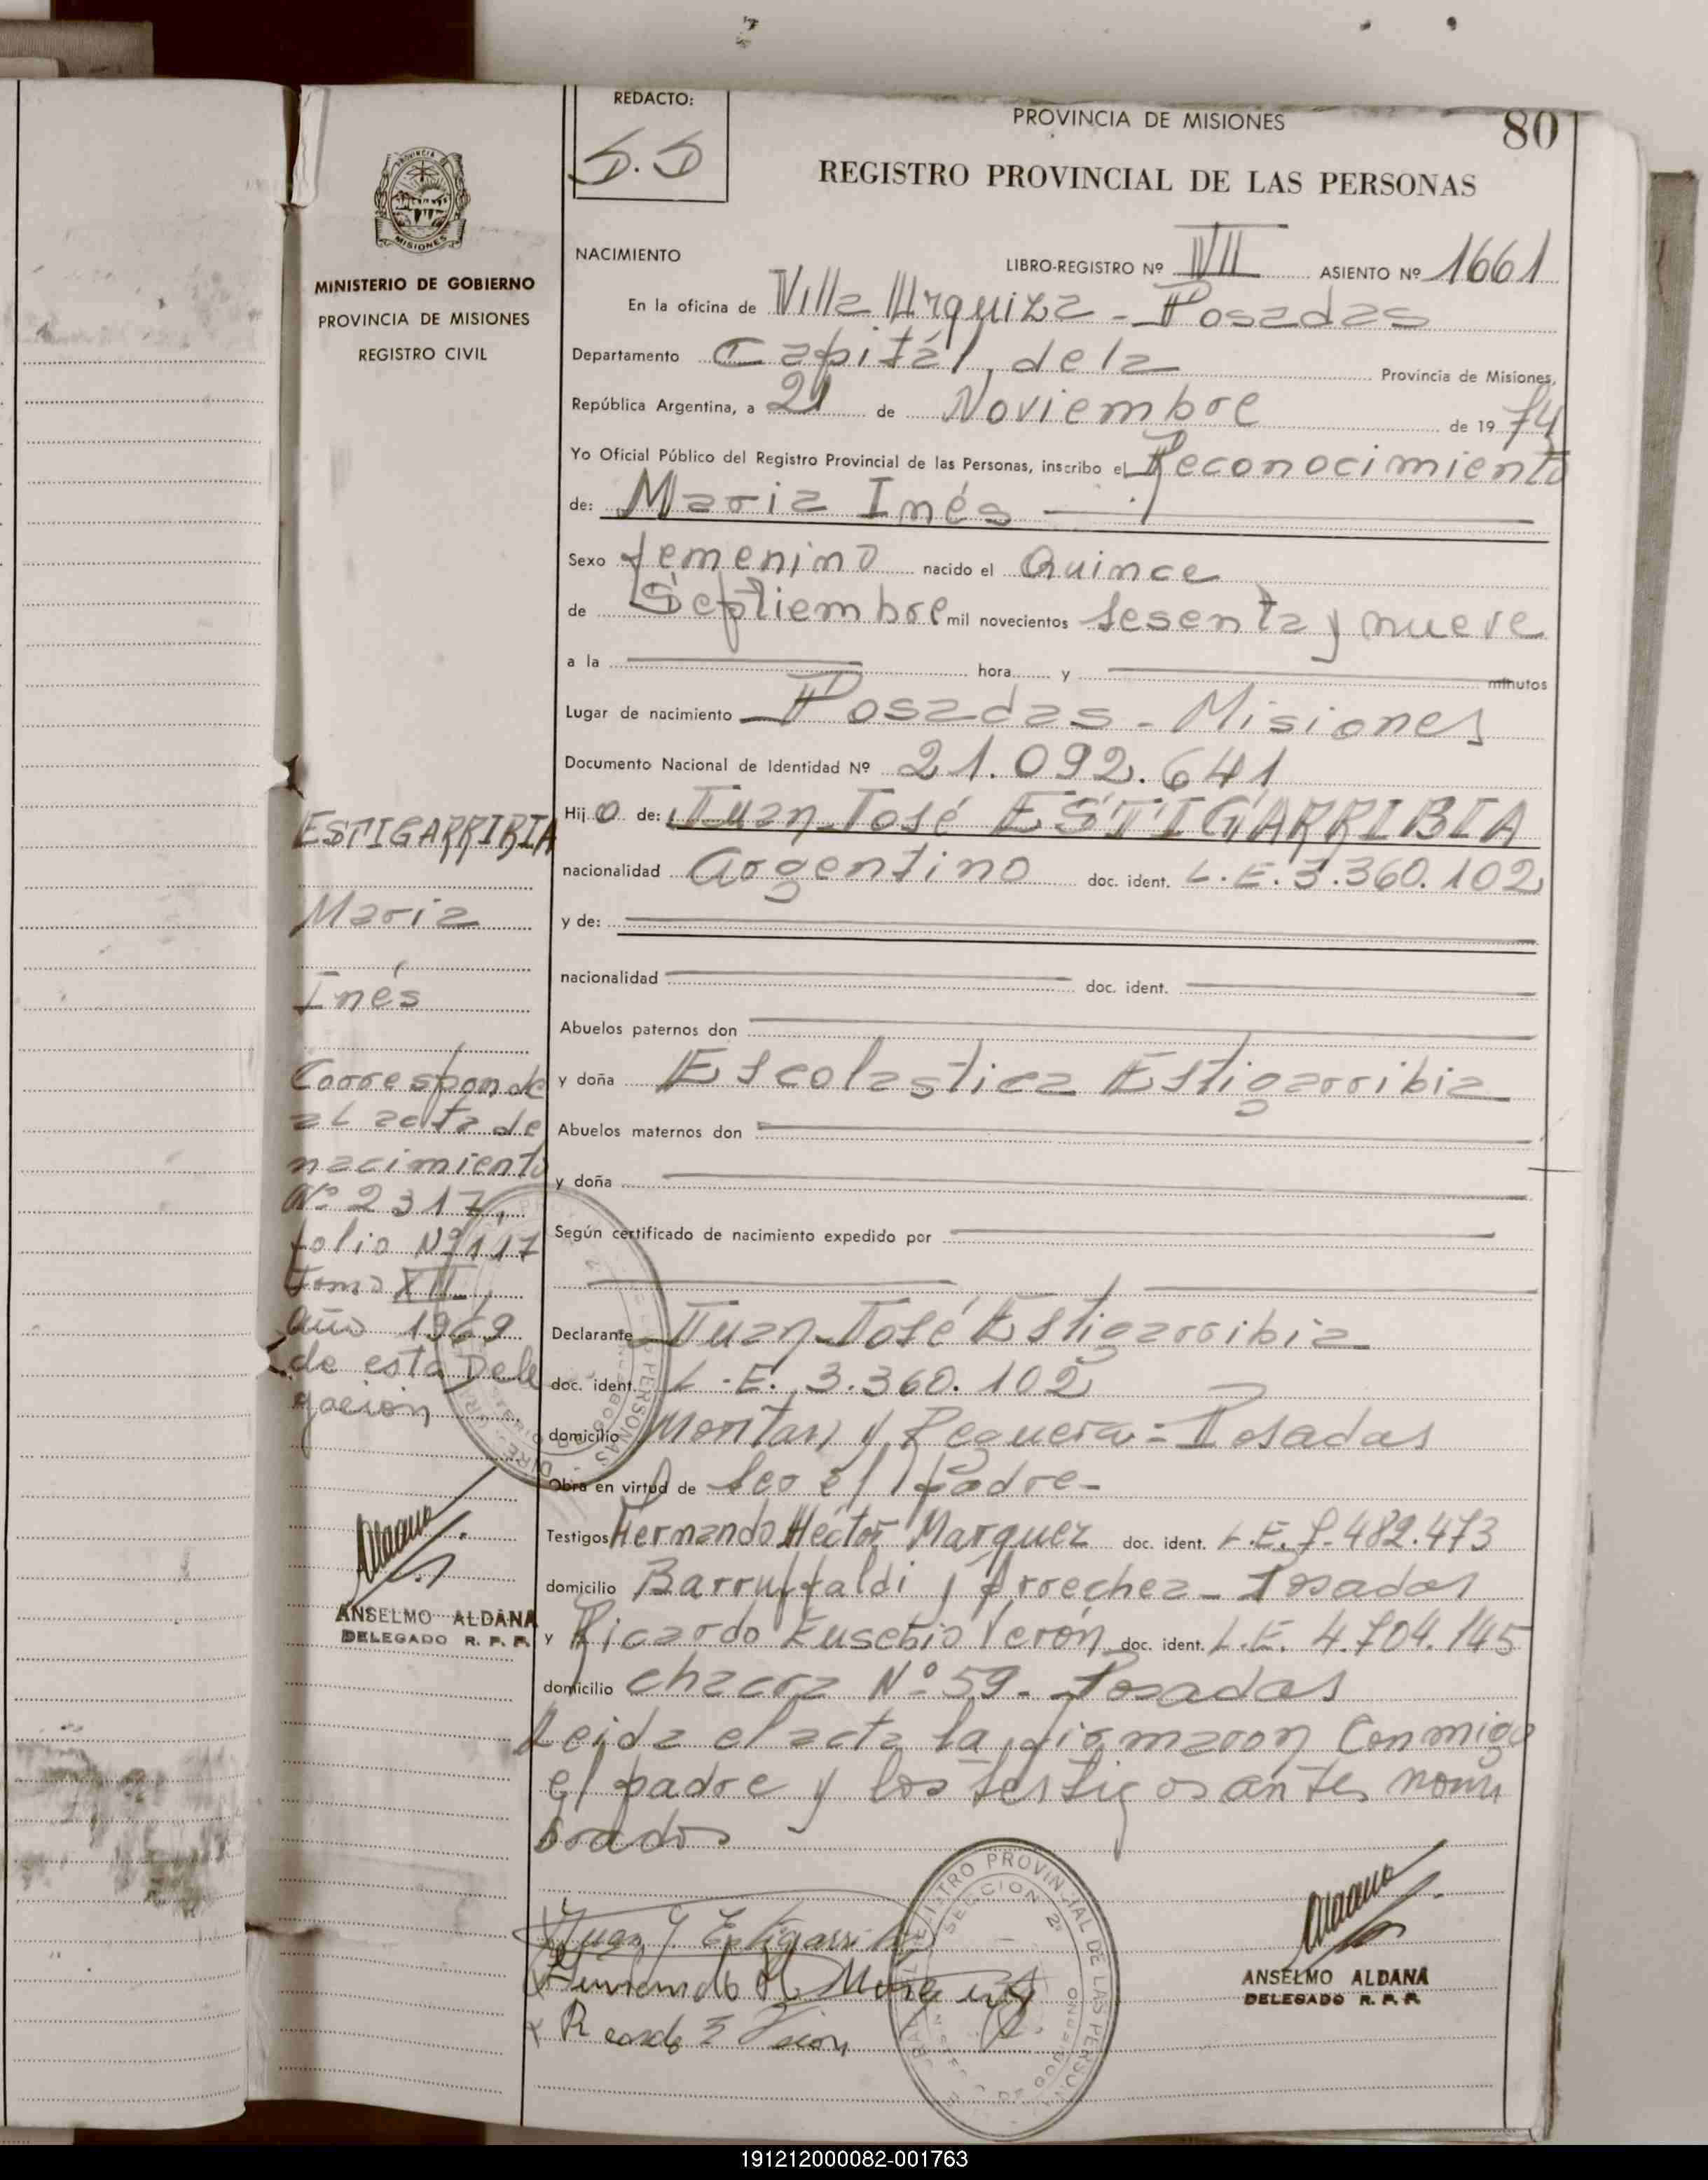 REDACTO:
S.S
PROVINCIA DE MISIONES
80
REGISTRO PROVINCIAL DE LAS PERSONAS
PROVINCIA DE
MISIONES
MINISTERIO DE GOBIERNO
PROVINCIA DE MISIONES
REGISTRO CIVIL
NACIMIENTO
LIBRO-REGISTRO Nº VII ASIENTO Nº 1661
En la oficina de Villa Urquiza - Posadas
Departamento Capitál, de la Provincia de Misiones,
República Argentina, a 21 de Noviembre de 1974
Yo Oficial Público del Registro Provincial de las Personas, inscribo el Reconocimiento
de: Maria Inés
Sexo femenino nacido el Quince
de Septiembre mil novecientos sesenta y nueve
a la hora y minutos
Lugar de nacimiento Posadas - Misiones
Documento Nacional de Identidad Nº 21.092.641
Hijo de: Juan José ESTIGARRIBIA
nacionalidad argentino doc. ident. L.E. 3.360.102
y de:
nacionalidad doc. ident.
Abuelos paternos don
y doña Escolastica Estigarribia
Abuelos maternos don
y doña
Según certificado de nacimiento expedido por
Declarante Juan José Estigarribia
doc. ident. L.E. 3.360.102
domicilio y Posadas
Obra en virtud de ser el padre-
Testigos Fernando Héctor Marquez doc. ident. L.E. 7.482.473
domicilio Barruffaldi y Arrechea - Posadas
y Ricardo Eusebio Verón doc. ident. L.E. 4.704.145
domicilio chacra Nº 59 - Posadas
Leida el acta la firmaron conmigo
el padre y los testigos antes nom
brados
ESTIGARRIBIA
Maria
Inés
Corresponde
al acta de
nacimiento
Nº 2317,
folio Nº 117
tomo XII,
año 1969
de esta Dele
gacion
ANSELMO ALDANA
DELEGADO R. P. P.
Juan J. Estigarribia
Fernando H. Marquez
Ricardo E Veron
REGISTRO PROVINCIAL DE LAS PERSONAS
SECCION 2ª
ANSELMO ALDANA
DELEGADO R. P. P.
191212000082-001763